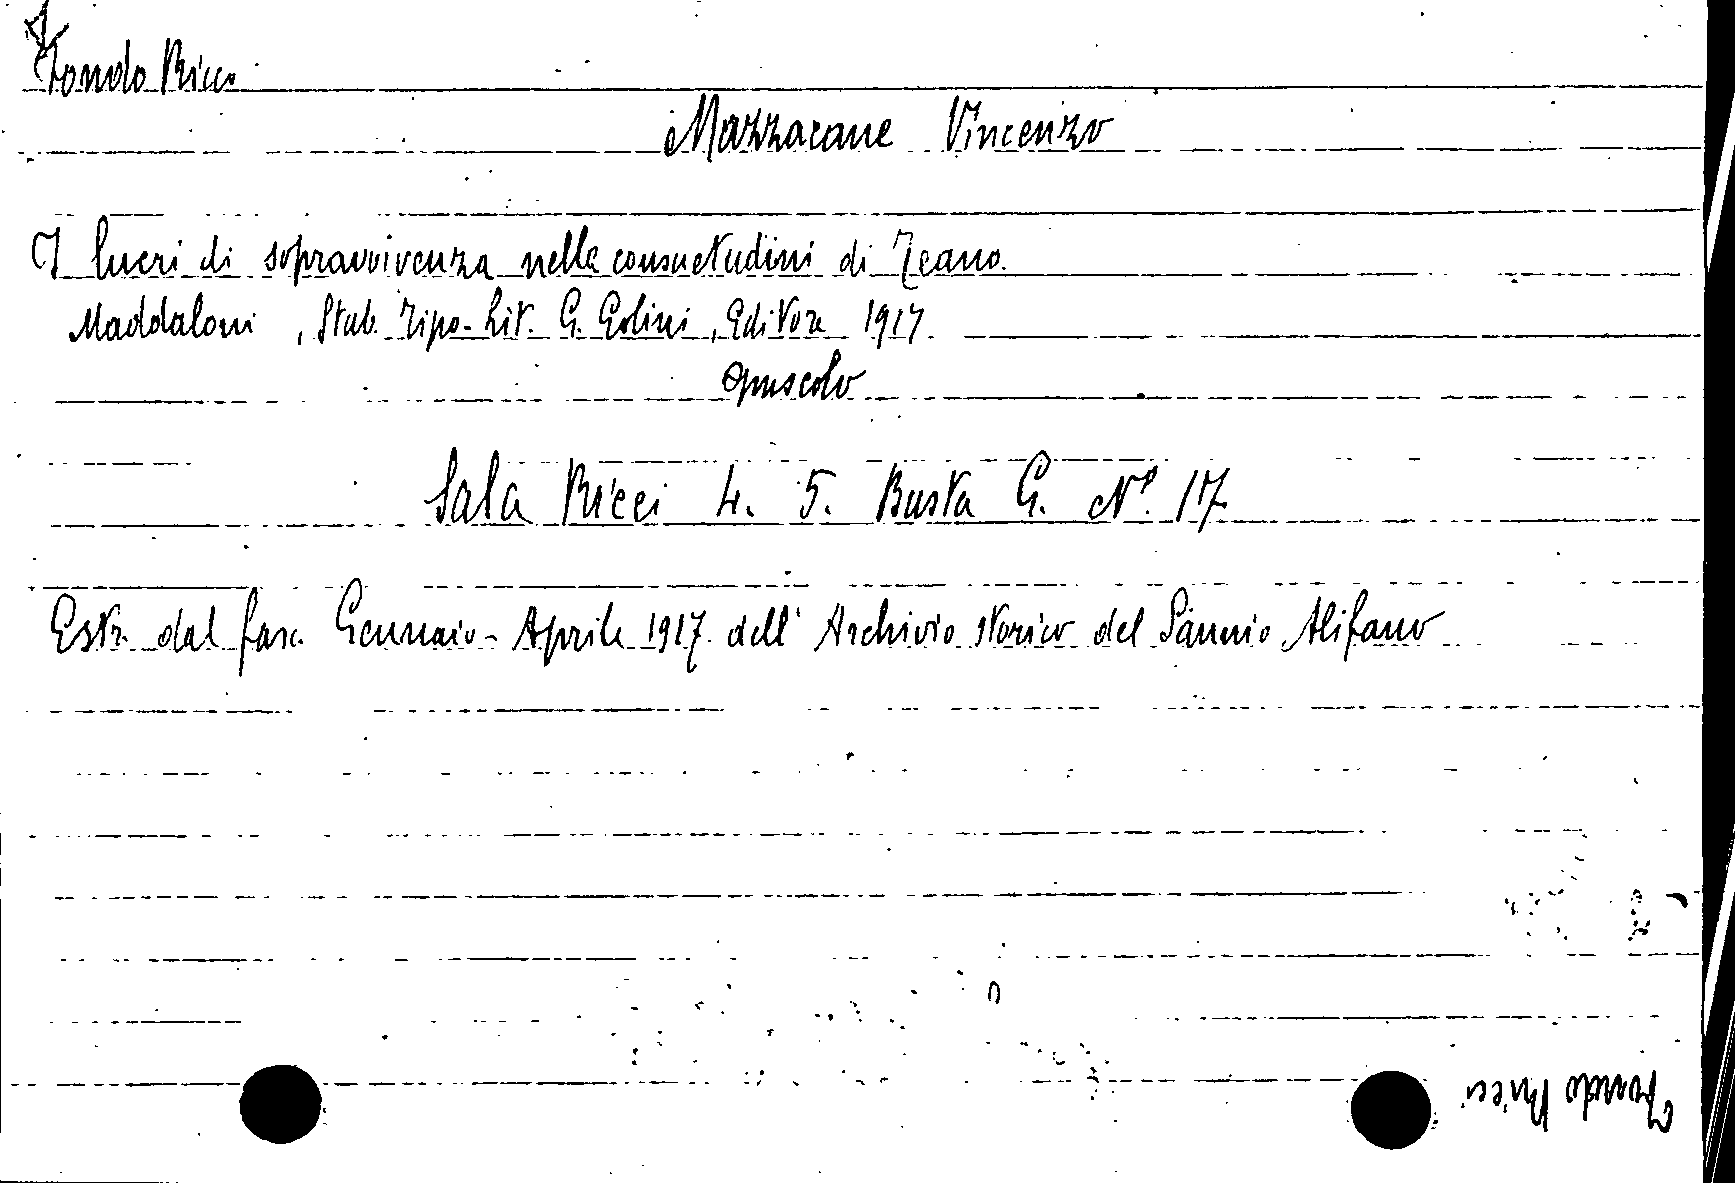 Fondo Ricci
Mazzacane Vincenzo
I lucri di sopravvivenza nelle consuetudini di Teano.
Maddaloni, Stab. Tipo-Lit. G. Golini, Editore 1917.
opuscolo
Sala Ricci 4. 5. Busta G. N° 17
Estr. dal fasc. Gennaio-Aprile 1917 dell' Archivio storico del Sannio Alifano
Fondo Ricci